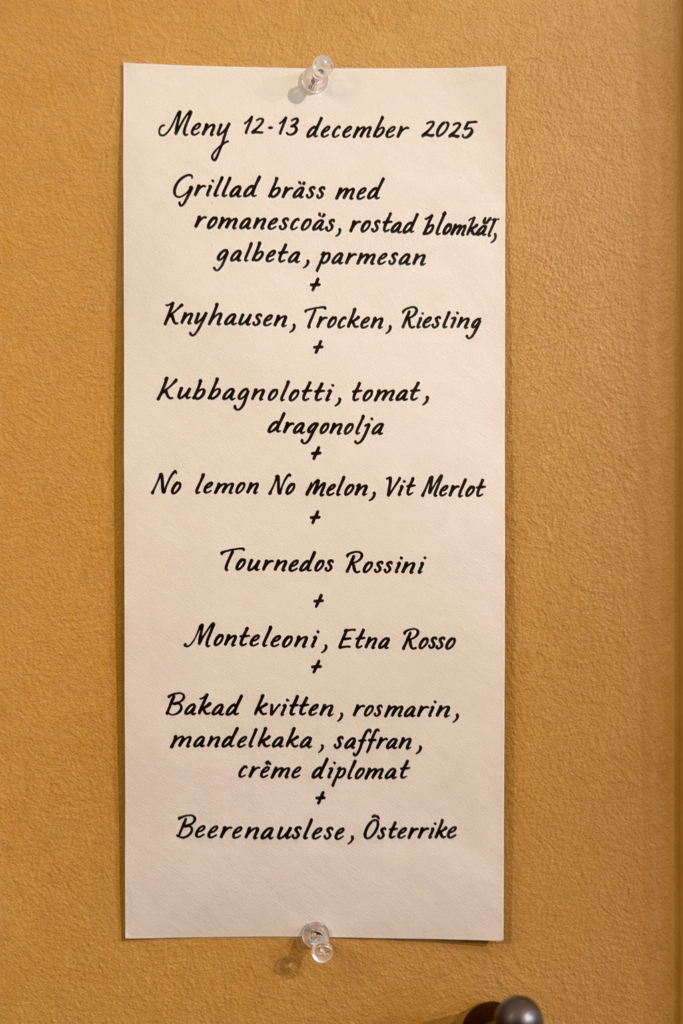 Meny 12-13 december 2025
Grillad bräss med
romanescoås, rostad blomkål,
galbeta, parmesan
+
Knyhausen, Trocken, Riesling
+
Kubbagnolotti, tomat,
dragonolja
+
No lemon No melon, Vit Merlot
+
Tournedos Rossini
+
Monteleoni, Etna Rosso
+
Bakad kvitten, rosmarin,
mandelkaka, saffran,
crème diplomat
+
Beerenauslese, Österrike